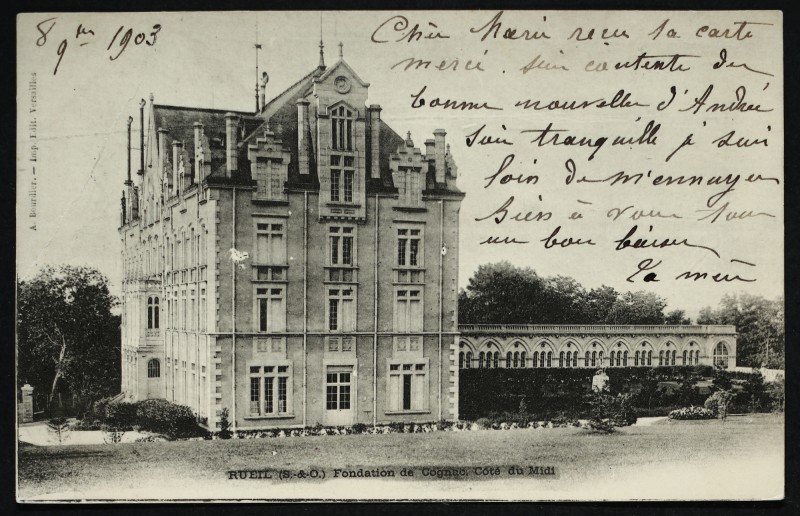 8 9bre 1903
Chère Marie reçu ta carte
merci. suis contente des
bonne nouvelles d'André
sois tranquille je suis
loin de m'ennuyer
Bien à vous tous
un bon baiser
Ta mère
A. Bourdier. — Imp. Edit. Versailles
RUEIL (S.-&-O.) Fondation de Cognac. Côté du Midi